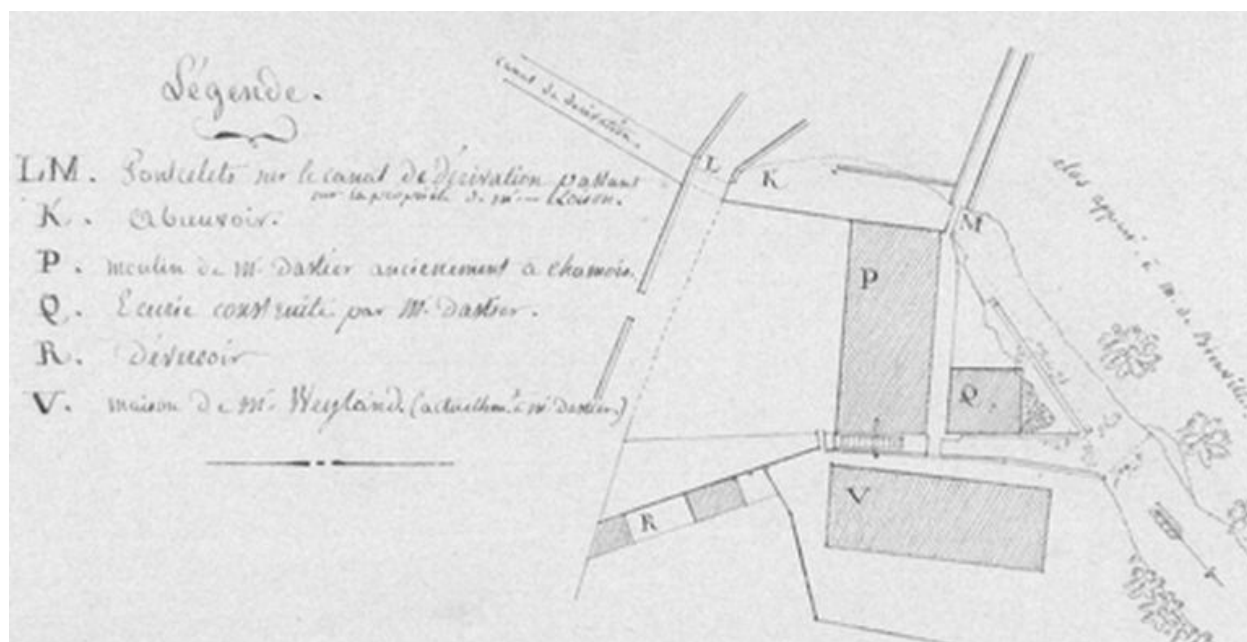 Légende.
LM. Pontcelets sur le canal de dérivation passant
sur la propriété de Mr. Loison.
K. abreuvoir.
P. moulin de M. Dastier anciennement à chamois.
Q. Ecurie construite par M. Dastier.
R. Déversoir
V. maison de Mr. Weyland (actuellemt. à Mr. Dastier.)
canal de dérivation.
L
K
M
clos appné à M. de
P
Q.
V
R